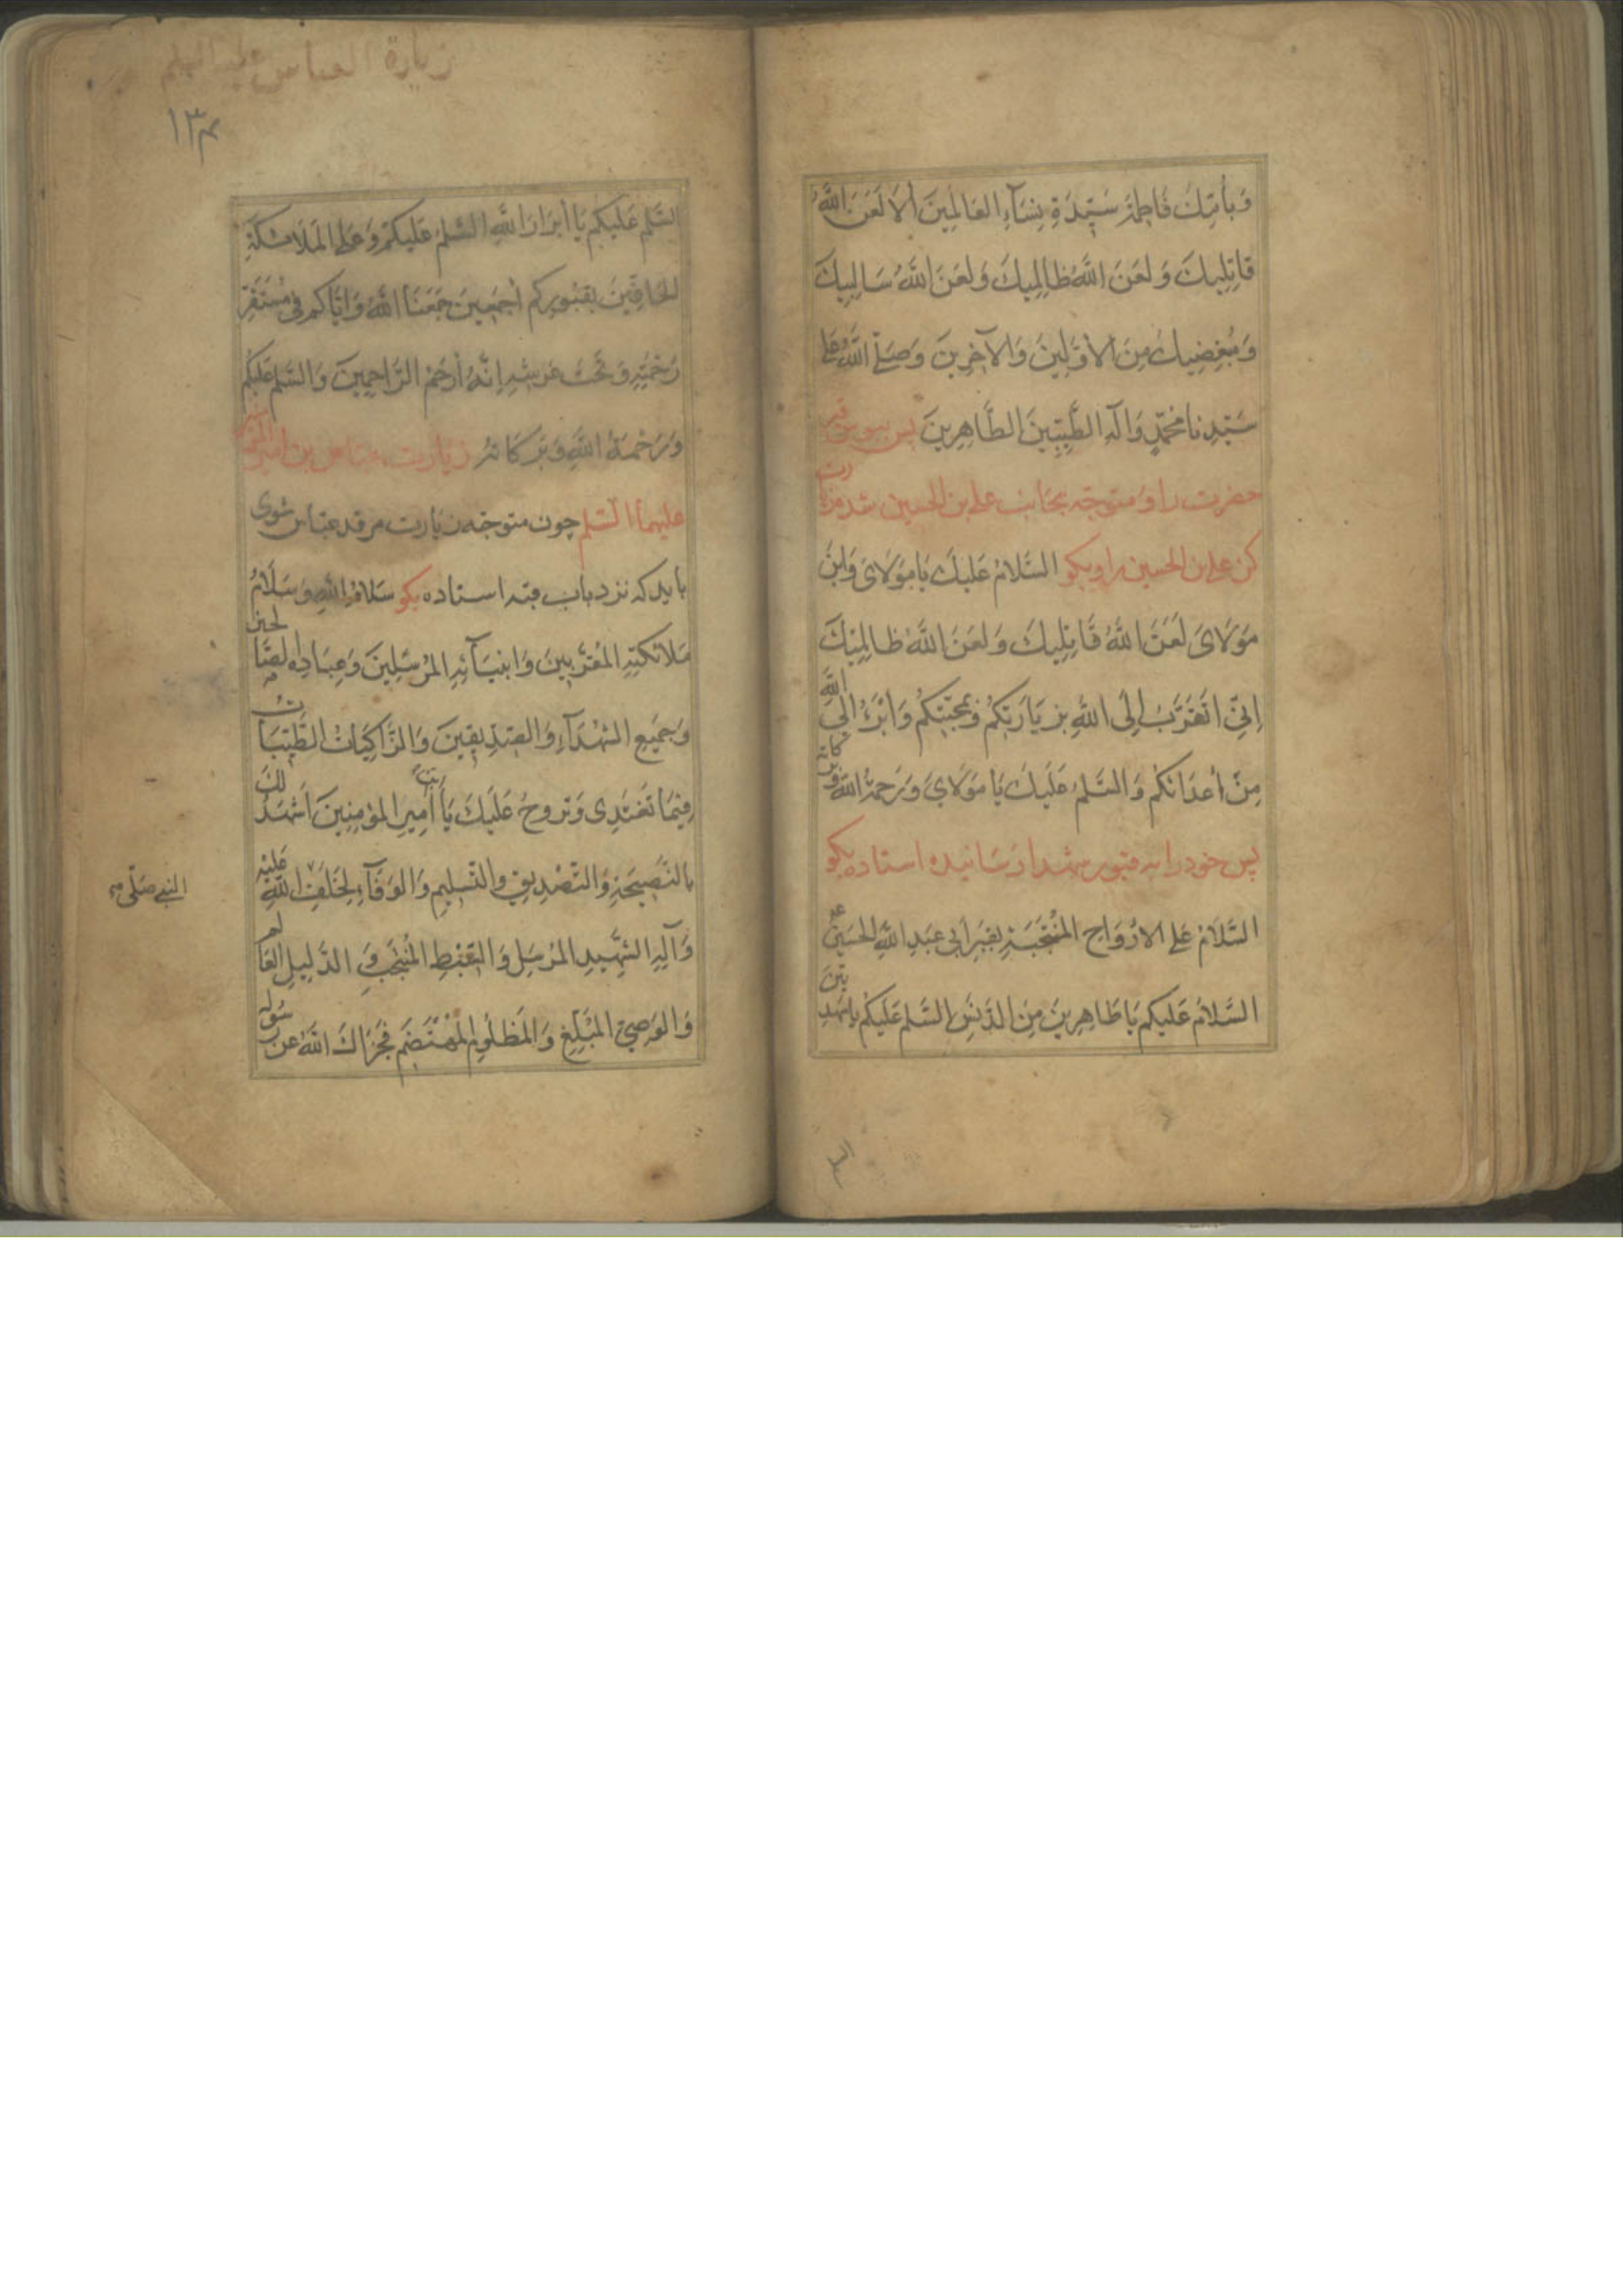 وَبِأُمِّكَ فَاطِمَةَ سَيِّدَةِ نِسَآءِ العَالَمِينَ أَلَا لَعَنَ اللَّهُ
قَاتِلِيكَ وَلَعَنَ اللَّهُ ظَالِمِيكَ وَلَعَنَ اللَّهُ سَالِبِيكَ
وَمُبْغِضِيكَ مِنَ الأَوَّلِينَ وَالآخِرِينَ وَصَلَّى اللَّهُ عَلَى
سَيِّدِنَا مُحَمَّدٍ وَآلِهِ الطَّيِّبِينَ الطَّاهِرِينَ پس ببوس قبر
حضرت را و متوجّه بجانب علي بن الحسين شده زيارت
كن علي بن الحسين را و بكو السَّلامُ عَلَيكَ يَا مَوْلَايَ وَابْنَ
مَوْلَايَ لَعَنَ اللَّهُ قَاتِلِيكَ وَلَعَنَ اللَّهُ ظَالِمِيكَ
اِنّي اَتَقَرَّبُ اِلَى اللَّهِ بِزِيَارَتِكُمْ وَبِمَحَبَّتِكُمْ وَاَبْرَءُ اِلَى اللَّهِ
مِنْ أَعْدَائِكُمْ وَالسَّلمُ عَلَيكَ يَا مَوْلَايَ وَرَحمَةُ اللَّهِ وَبركاته
پس خود را به قبور شهدا رسانيده استاده بكو
السَّلَامُ عَلَى الاَرْوَاحِ المُنْتَجَبَةِ بِقَبْرِ أَبِي عَبْدِ اللَّهِ الحُسَيْنِ ع
السَّلَامُ عَلَيكُمْ يَا طَاهِرِينَ مِنَ الدَّنَسِ السَّلمُ عَلَيكُمْ يَا مَهْدِيِّينَ
زيارة العباس عليه السلم
١٣٢
السَّلمُ عَلَيكُم يَا أَبْرَارَ اللَّهِ السَّلمُ عَلَيكُمْ وَعَلَى المَلَائِكَةِ
الحَافِّينَ بِقُبُورِكُم أَجْمَعِينَ جَمَعَنَا اللَّهُ وَاِيَّاكُمْ فِي مُسْتَقَرِّ
رَحْمَتِهِ وَتَحْتَ عَرْشِهِ اِنَّهُ أَرْحَمُ الرَّاحِمِينَ وَالسَّلمُ عَلَيكُم
وَرَحْمَةُ اللَّهِ وَبَرَكَاتُهُ زيارت عباس بن امير المؤمنين
عليهما السّلم چون متوجّه زيارت مرقد عبّاس شوى
بايد كه نزد باب قبه استاده بكو سَلَامُ اللَّهِ وَسَلَامُ
مَلَائِكَتِهِ المُقَرَّبِينَ وَاَنْبِيَآئِهِ المُرْسَلِينَ وَعِبَادِهِ الصَّالحين
وَجَمِيعِ الشُّهَدَآءِ وَالصِّدِّيقِينَ وَالزَّاكِيَاتُ الطَّيِّبَاتُ
فِيمَا تَغْتَدِى وَتَرُوحُ عَلَيكَ يَا بْنَ أَمِيرِ المُؤمِنِينَ أَشْهَدُ لَكَ
بِالنَّصِيحَةِ وَالتَّصْدِيقِ وَالتَّسلِيمِ وَالوَفَآءِ لِخَلَفِ
النبي صلّى
وَآلِهِ الشَّهِيدِ المُرْسَلِ وَالسِّبْطِ المُنْتَجَبِ وَ الدَّلِيلِ العَالم
وَالوَصِيِّ المُبَلِّغِ وَالمَظْلُومِ المُهْتَضَمِ فَجَزَاكَ اللَّهُ عَن رَسُولِهِ